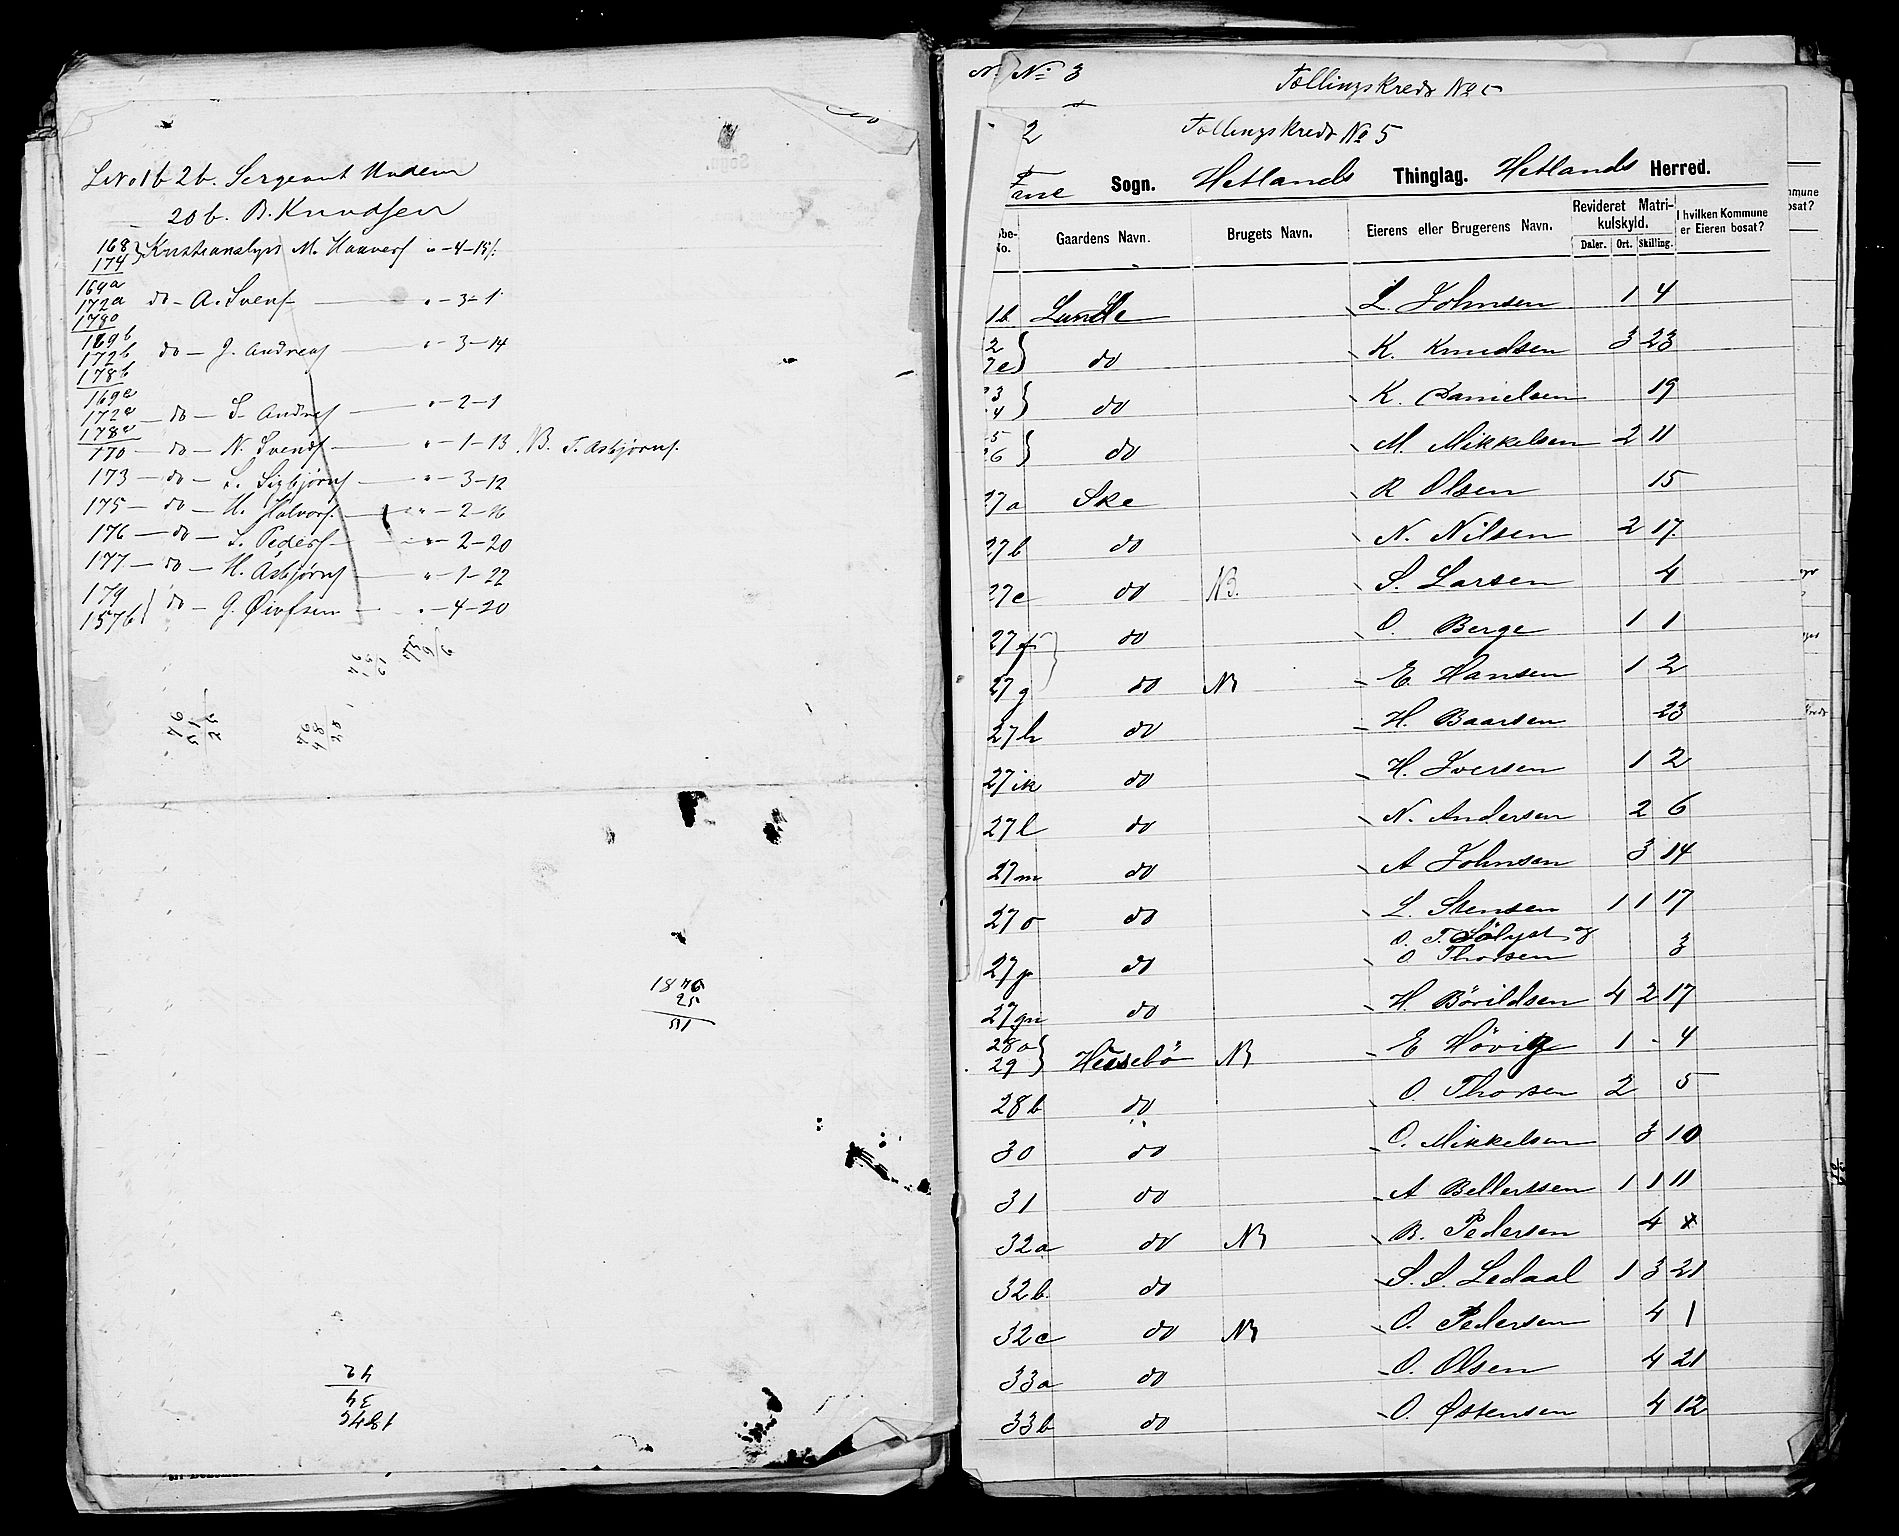 LNo 1b 2b. Sergeant
20b. B. Knudsen
168
174 } Kristianslyst M. Haavers " - 4 - 15
169a
172a do - A. Svens — " - 3 - 1
179a
169b
172b do - J. Andreas — " - 3 - 14
178b
169c
172c - do - S. Andreas — " - 2 - 1
178c
170 - do - N. Svends — " - 1 - 13 NB. T. Asbjørns.
173 - do - S. Sigbjørns — " - 3 - 12
175 - do - H. Halvors. — " - 2 - 16
176 - do - S. Peders — " - 2 - 20
177 - do - H. Asbjørns — " - 1 - 22
179
157b } do - G. Øivfsen — " - 4 - 20
1876
25
51
42
34
1842
No 3
Tællingskreds No 5
2
Tællingskreds No 5
Sogn. Hetlands Thinglag. Hetlands Herred.
No. Gaardens Navn. Brugets Navn. Eierens eller Brugerens Navn. Revideret Matrikulskyld. Daler. Ort. Skilling. I hvilken Kommune er Eieren bosat?
1b Lunde L. Johnsen 1 4
2
7e } do K. Knudsen 3 23
3
4 } do K. Danielsen 19
5
26 } do M. Mikkelsen 2 11
27a Ske R Olsen 15
27b do N. Nilsen 2 17
27c do NB. S. Larsen 4
27f do O. Berge 1 1
27g do NB E. Hansen 1 2
27h do H. Baarsen 23
27ik do H. Iversen 1 2
27l do N. Andersen 2 6
27m do A Johnsen 3 14
27o do L. Stensen 1 1 17
27p do O. T. Sølyst og O Thorsen 3
27qn do H. Bårildsen 4 2 17
28a
29 } Hessebö NB E Høvig 1 - 4
28b do O. Thorsen 2 5
30 do O. Mikkelsen 3 10
31 do A Bellertsen 1 1 11
32a do NB B. Pedersen 4
32b. do S. S. Ledaal 1 3 21
32c do NB O. Pedersen 4 1
33a do O. Olsen 4 21
33b do O. Østensen 4 12